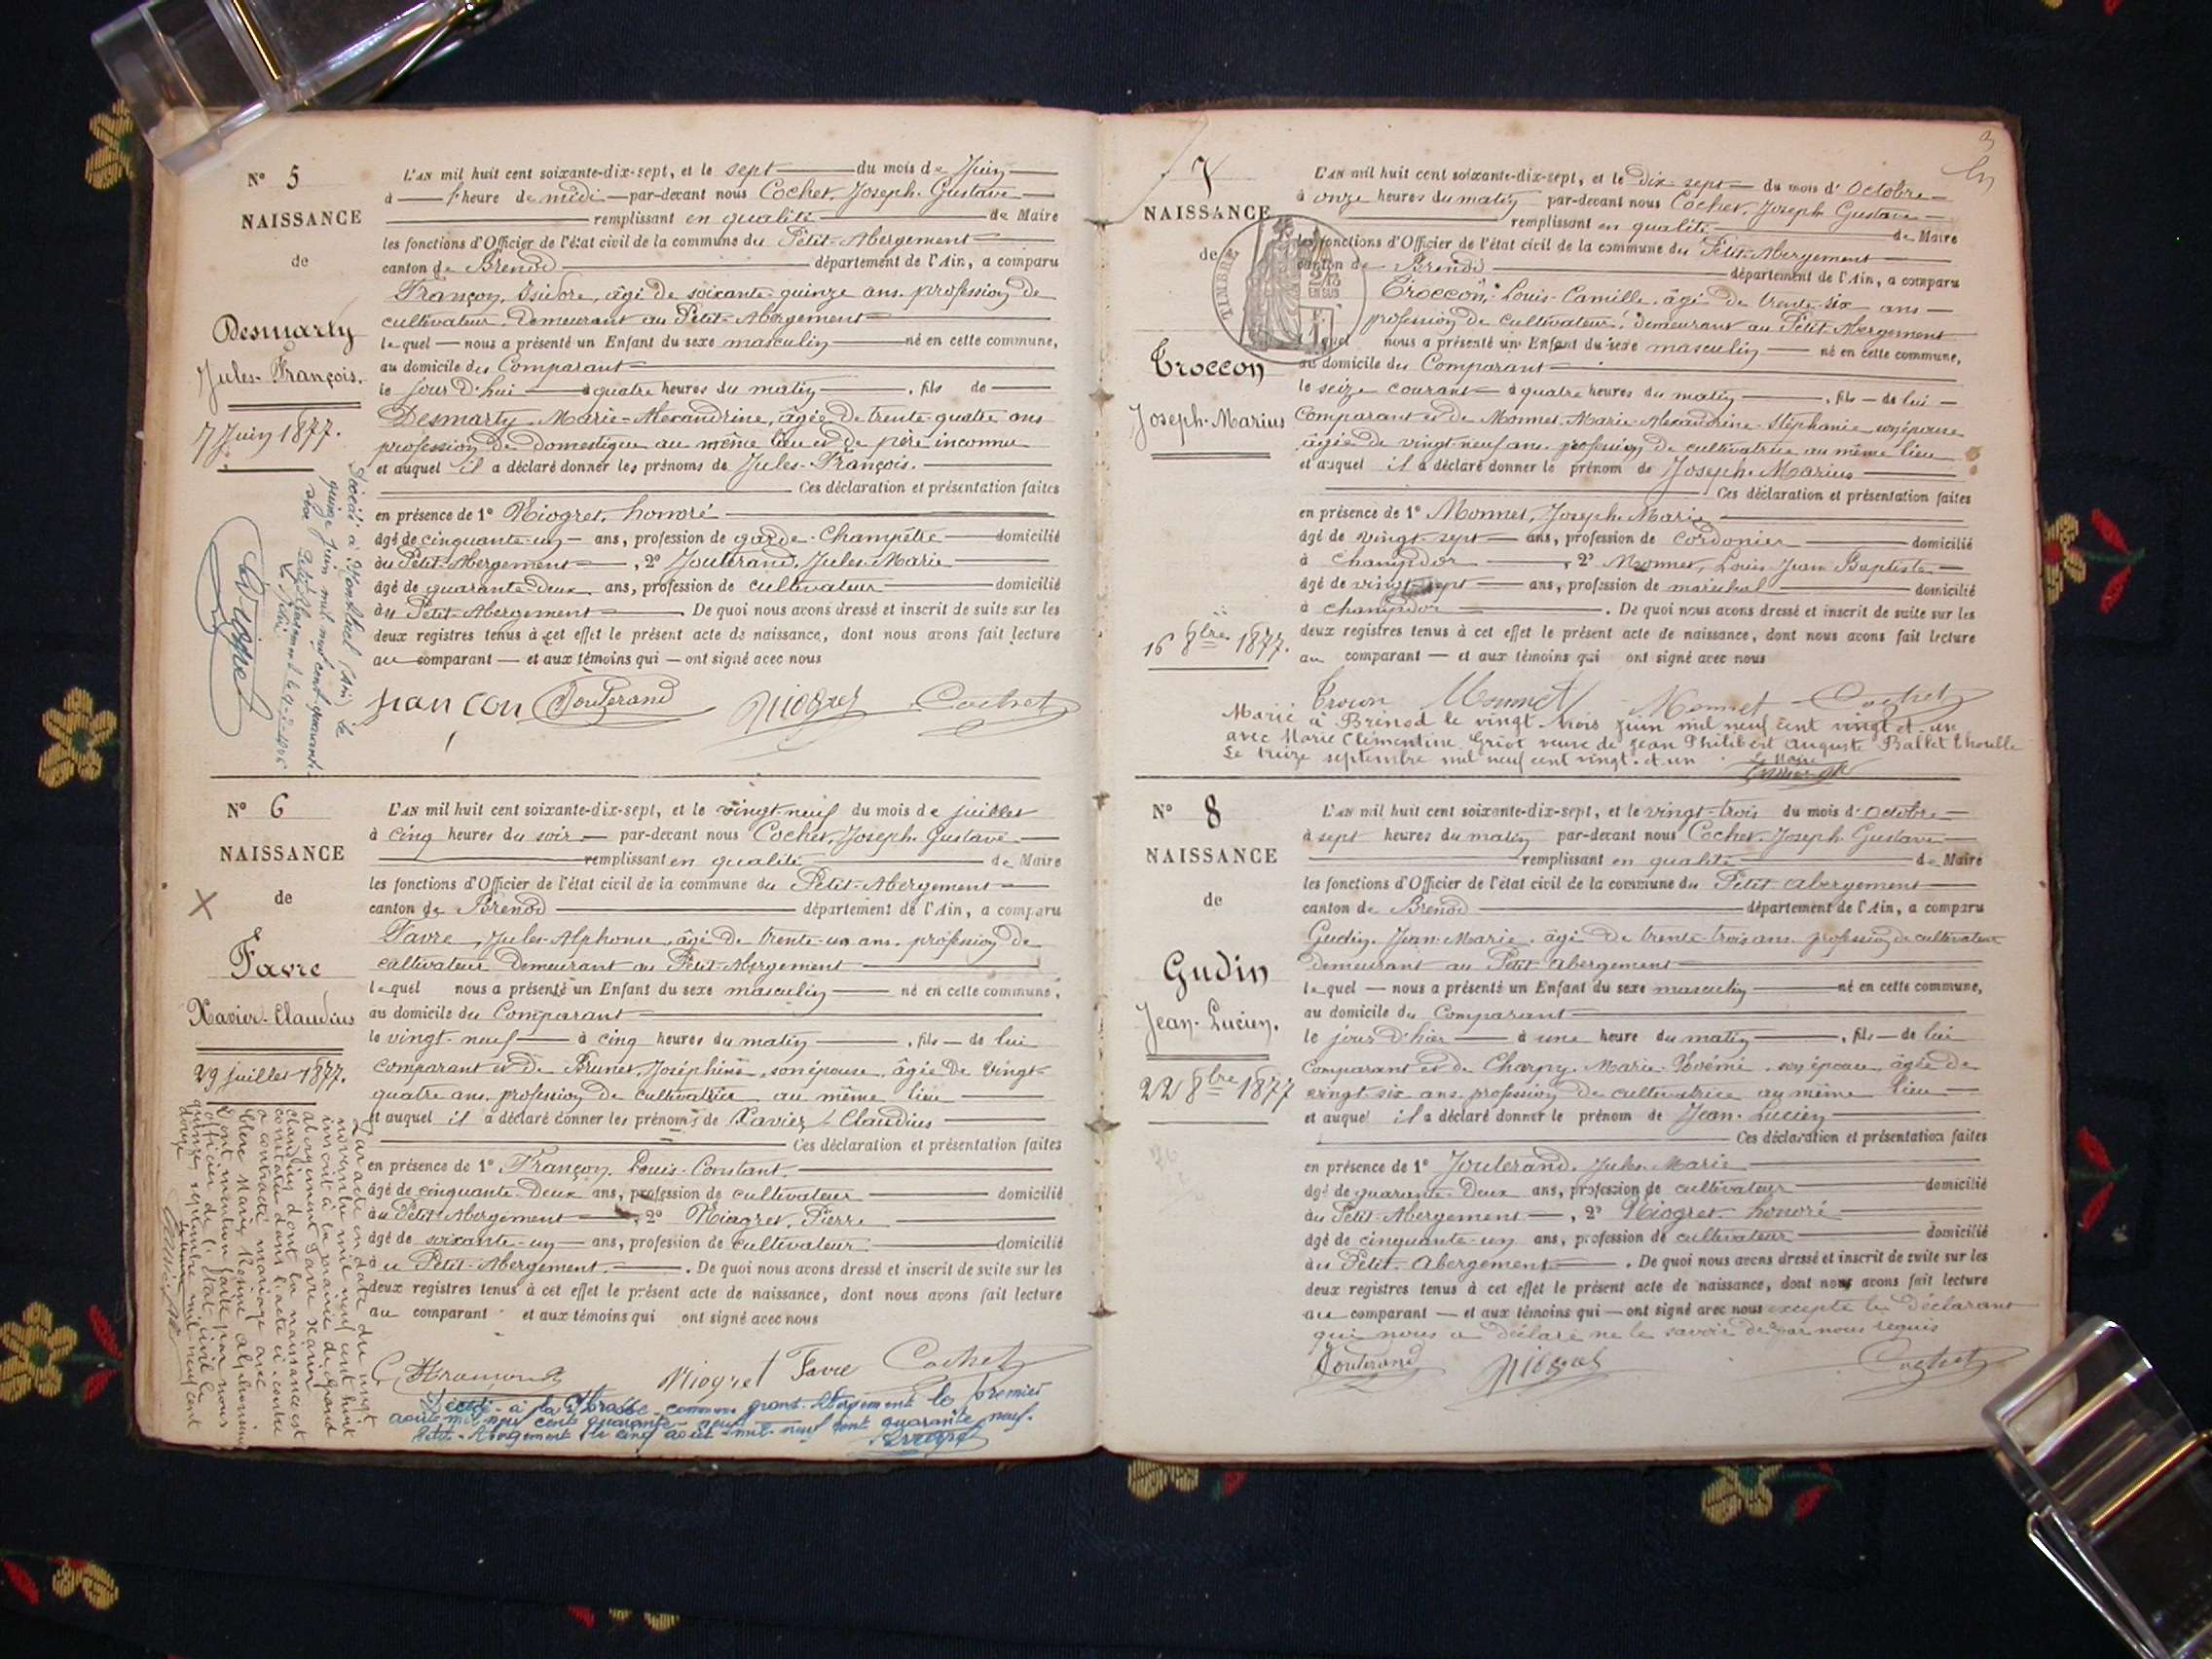 N° 5
NAISSANCE
de
Desmarty
Jules-François.
7 Juin 1877.
L'AN mil huit cent soixante-dix-sept, et le sept du mois de Juin
à l'heure de midi par-devant nous Cochet, Joseph Gustave
remplissant en qualité de Maire
les fonctions d'Officier de l'état civil de la commune du Petit-Abergement
canton de Brenod département de l'Ain, a comparu
Françon, Isidore, âgé de soixante-quinze ans, profession de
cultivateur, demeurant au Petit-Abergement
lequel nous a présenté un Enfant du sexe masculin né en cette commune,
au domicile du Comparant
le jour d'hui à quatre heures du matin, fils de
Desmarty, Marie-Alexandrine, âgée de trente-quatre ans
profession de domestique au même lieu et de père inconnu
et auquel il a déclaré donner les prénoms de Jules-François.
Ces déclaration et présentation faites
en présence de 1° Niogret, honoré
âgé de cinquante-un ans, profession de garde-Champêtre domicilié
au Petit-Abergement, 2° Jouterand, Jules-Marie
âgé de quarante-deux ans, profession de cultivateur domicilié
au Petit-Abergement. De quoi nous avons dressé et inscrit de suite sur les
deux registres tenus à cet effet le présent acte de naissance, dont nous avons fait lecture
au comparant et aux témoins qui ont signé avec nous
francon Jouterand Niogret Cochet
Décédé à Montluel (Ain) le
quinze juin mil neuf cent quarante
Petit Abergement
N° 6
NAISSANCE
de
Favre
Xavier-Claudius
29 juillet 1877.
L'AN mil huit cent soixante-dix-sept, et le vingt-neuf du mois de juillet
à cinq heures du soir par-devant nous Cochet, Joseph Gustave
remplissant en qualité de Maire
les fonctions d'Officier de l'état civil de la commune du Petit-Abergement
canton de Brenod département de l'Ain, a comparu
Favre, Jules-Alphonse, âgé de trente-un ans, profession de
cultivateur demeurant au Petit-Abergement
lequel nous a présenté un Enfant du sexe masculin né en cette commune,
au domicile du Comparant
le vingt-neuf à cinq heures du matin, fils de lui
comparant et de Brunet, Joséphine, son épouse, âgée de vingt-
quatre ans, profession de cultivatrice au même lieu
et auquel il a déclaré donner les prénoms de Xavier Claudius
Ces déclaration et présentation faites
en présence de 1° Françon, Louis-Constant
âgé de cinquante-deux ans, profession de cultivateur domicilié
au Petit-Abergement, 2° Niogret, Pierre
âgé de soixante-un ans, profession de cultivateur domicilié
au Petit-Abergement. De quoi nous avons dressé et inscrit de suite sur les
deux registres tenus à cet effet le présent acte de naissance, dont nous avons fait lecture
au comparant et aux témoins qui ont signé avec nous
Niogret Favre Cochet
Décédé à la commune grand-Abergement le premier
août mil neuf cent quarante-neuf
Petit-Abergement le cinq août mil neuf cent quarante neuf.
Par acte en date du vingt
novembre mil neuf cent huit
inscrit à la mairie de grand
abergement Favre Xavier
claudius dont la naissance est
constatée dans l'acte ci-contre
a contracté mariage avec
dont mention faite par nous
officier de l'état civil le
quinze septembre mil neuf cent
douze
7
NAISSANCE
de
TIMBRE
Troccon
Joseph-Marius
16 8bre 1877.
L'AN mil huit cent soixante-dix-sept, et le dix-sept du mois d'Octobre
à onze heures du matin par-devant nous Cochet, Joseph Gustave
remplissant en qualité de Maire
les fonctions d'Officier de l'état civil de la commune du Petit-Abergement
canton de Brenod département de l'Ain, a comparu
Troccon, Louis-Camille, âgé de trente-six ans
profession de cultivateur, demeurant au Petit-Abergement
lequel nous a présenté un Enfant du sexe masculin né en cette commune,
au domicile du Comparant
le seize courant à quatre heures du matin, fils de lui
Comparant et de Monnet, Marie-Alexandrine-Stéphanie son épouse
âgée de vingt-neuf ans, profession de cultivatrice au même lieu
et auquel il a déclaré donner le prénom de Joseph-Marius
Ces déclaration et présentation faites
en présence de 1° Monnet, Joseph-Marie
âgé de vingt-sept ans, profession de cordonier domicilié
à Champdor, 2° Monnet, Louis Jean Baptiste
âgé de vingt-sept ans, profession de maréchal domicilié
à Champdor. De quoi nous avons dressé et inscrit de suite sur les
deux registres tenus à cet effet le présent acte de naissance, dont nous avons fait lecture
au comparant et aux témoins qui ont signé avec nous
Trocon Monnet Monnet Cochet
Marié à Brénod le vingt-trois juin mil neuf cent vingt et un
avec Marie Clémentine Griot veuve de Jean Philibert Auguste Ballet
Le treize septembre mil neuf cent vingt et un
Le Maire
N° 8
NAISSANCE
de
Gudin
Jean-Lucien.
22 8bre 1877
L'AN mil huit cent soixante-dix-sept, et le vingt-trois du mois d'Octobre
à sept heures du matin par-devant nous Cochet, Joseph Gustave
remplissant en qualité de Maire
les fonctions d'Officier de l'état civil de la commune du Petit-Abergement
canton de Brenod département de l'Ain, a comparu
Gudin, Jean-Marie, âgé de trente-trois ans, profession de cultivateur
demeurant au Petit-Abergement
lequel nous a présenté un Enfant du sexe masculin né en cette commune,
au domicile du Comparant
le jour d'hier à une heure du matin, fils de lui
Comparant et de Charpy, Marie-Noémie, son épouse, âgée de
vingt-six ans, profession de cultivatrice au même lieu
et auquel il a déclaré donner le prénom de Jean-Lucien
Ces déclaration et présentation faites
en présence de 1° Jouterand, Jules-Marie
âgé de quarante-deux ans, profession de cultivateur domicilié
au Petit-Abergement, 2° Niogret honoré
âgé de cinquante-un ans, profession de cultivateur domicilié
au Petit-Abergement. De quoi nous avons dressé et inscrit de suite sur les
deux registres tenus à cet effet le présent acte de naissance, dont nous avons fait lecture
au comparant et aux témoins qui ont signé avec nous excepté le déclarant
qui nous a déclaré ne le savoir de par nous requis
Jouterand Niogret Cochet